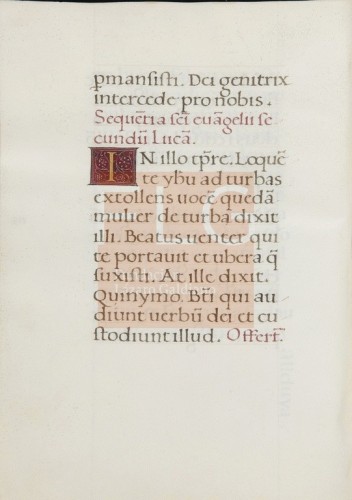 pmansisti. Dei genitrix
intercede pro nobis.
Sequẽtia scĩ euãgelii se
cundũ Lucã.
IN illo tp̃re. Loquẽ
te yh̃u ad turbas
extollens uocẽ quedã
mulier de turba dixit
illi. Beatus uenter qui
te portauit et ubera q̃
suxisti. At ille dixit.
Quinymo. Bt̃i qui au
diunt uerbũ dei et cu
stodiunt illud. Offert̃.